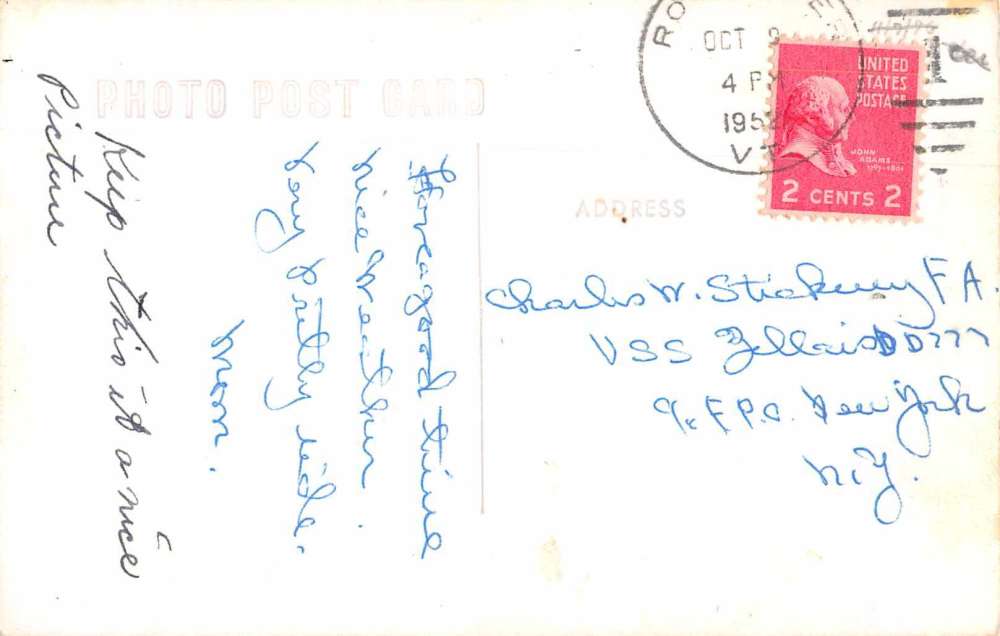 PHOTO POST CARD
Keep this it a nice
Picture
Have a good time
nice weather.
Very Pretty ride.
Mom.
OCT 9
4 PM
1952
VT
UNITED
STATES
POSTAGE
JOHN
ADAMS
1797-1801
2 CENTS 2
ADDRESS
Charles W. Stickney F A.
USS Zellars DD777
% F.P.O. New York
N.Y.